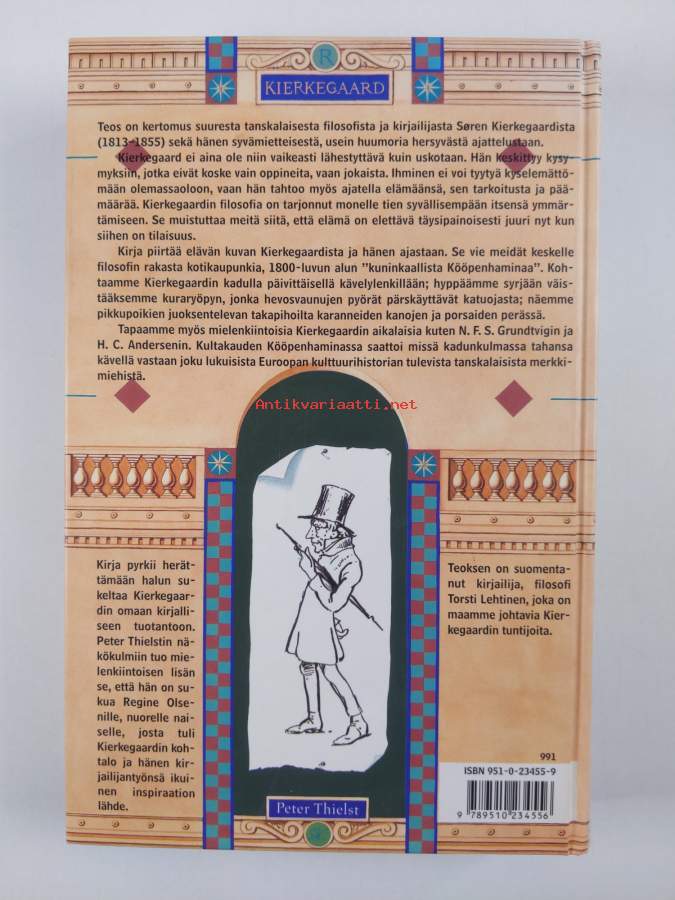 R
KIERKEGAARD
Teos on kertomus suuresta tanskalaisesta filosofista ja kirjailijasta Søren Kierkegaardista
(1813–1855) sekä hänen syvämietteisestä, usein huumoria hersyvästä ajattelustaan.
Kierkegaard ei aina ole niin vaikeasti lähestyttävä kuin uskotaan. Hän keskittyy kysy-
myksiin, jotka eivät koske vain oppineita, vaan jokaista. Ihminen ei voi tyytyä kyselemättö-
mään olemassaoloon, vaan hän tahtoo myös ajatella elämäänsä, sen tarkoitusta ja pää-
määrää. Kierkegaardin filosofia on tarjonnut monelle tien syvällisempään itsensä ymmär-
tämiseen. Se muistuttaa meitä siitä, että elämä on elettävä täysipainoisesti juuri nyt kun
siihen on tilaisuus.
Kirja piirtää elävän kuvan Kierkegaardista ja hänen ajastaan. Se vie meidät keskelle
filosofin rakasta kotikaupunkia, 1800-luvun alun ”kuninkaallista Kööpenhaminaa”. Koh-
taamme Kierkegaardin kadulla päivittäisellä kävelylenkillään; hyppäämme syrjään väis-
tääksemme kuraryöpyn, jonka hevosvaunujen pyörät pärskäyttävät katuojasta; näemme
pikkupoikien juoksentelevan takapihoilta karanneiden kanojen ja porsaiden perässä.
Tapaamme myös mielenkiintoisia Kierkegaardin aikalaisia kuten N. F. S. Grundtvigin ja
H. C. Andersenin. Kultakauden Kööpenhaminassa saattoi missä kadunkulmassa tahansa
kävellä vastaan joku lukuisista Euroopan kulttuurihistorian tulevista tanskalaisista merkki-
miehistä.
Antikvariaatti.net
Kirja pyrkii herät-
tämään halun su-
keltaa Kierkegaar-
din omaan kirjalli-
seen tuotantoon.
Peter Thielstin nä-
kökulmiin tuo mie-
lenkiintoisen lisän
se, että hän on su-
kua Regine Olse-
nille, nuorelle nai-
selle, josta tuli
Kierkegaardin koh-
talo ja hänen kir-
jailijantyönsä ikui-
nen inspiraation
lähde.
Teoksen on suomenta-
nut kirjailija, filosofi
Torsti Lehtinen, joka on
maamme johtavia Kier-
kegaardin tuntijoita.
991
ISBN 951-0-23455-9
9 789510 234556
Peter Thielst